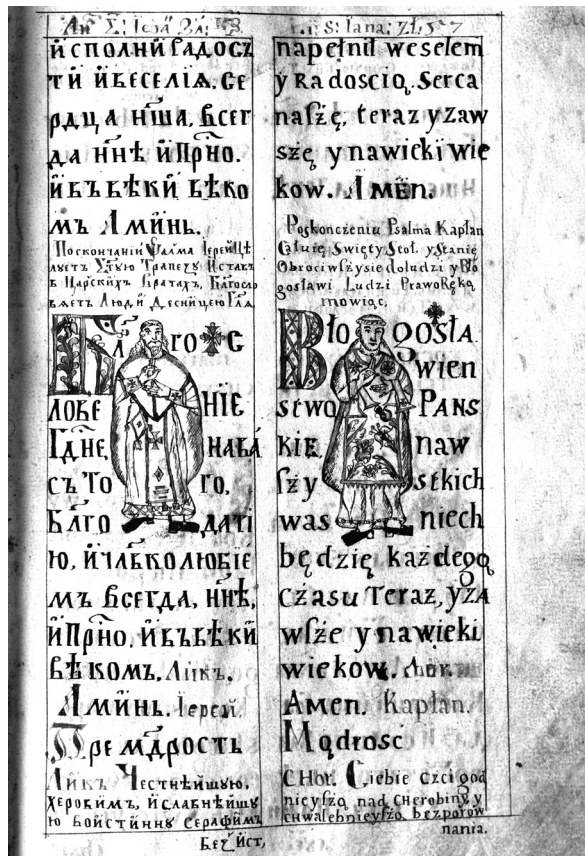 и҆сполни радост
ти и҆ веселїѧ. се
рдца нша, всег
да ннѣ и҆ прно.
и҆ въ вѣки вѣко
мъ Аминь.
По скончанїи Ѱалма Їерей цѣ
луетъ Стую Трапезу И ставъ
в Царскихъ Вратахъ, Благосло
вляетъ Люди Десницею Глѧ
Благос
ловенїе
Гдне, на ва
съ того,
благодатї
ю, и҆ члвколюбїе
мъ всегда, ннѣ,
и҆ прно, и҆ въ вѣки
вѣкомъ. Ликъ.
Аминь. Їерей.
Премдрость
Ликъ Честнѣйшую.
херовимъ, и҆ славнѣйшу
ю воистинну серафимъ
Без ист,
S: Jana: Zł:
napełnił weselem
y Radoscią. Serca
naſzę, teraz y zaw
szę y nawieki wie
kow. Amen.
Poskonczeniu Psalma Kapłan
Całuię Swięty Stoł. y Stanię
Obrociwſzysie doludzi y Bło
gosławi Ludzi PrawoRęką
mowiąc,
Błogosła
wien
stwo Pans
kie naw
ſzystkich
was niech
będzię każdegą
czasu Teraz, yza
wſże y nawieki
wiekow.
Amen. Kapłan.
Mądrosc
CHor. Ciebie czci god
nieyſzą nad cherobiny y
chwalebnieyſzą bezporow
nania.